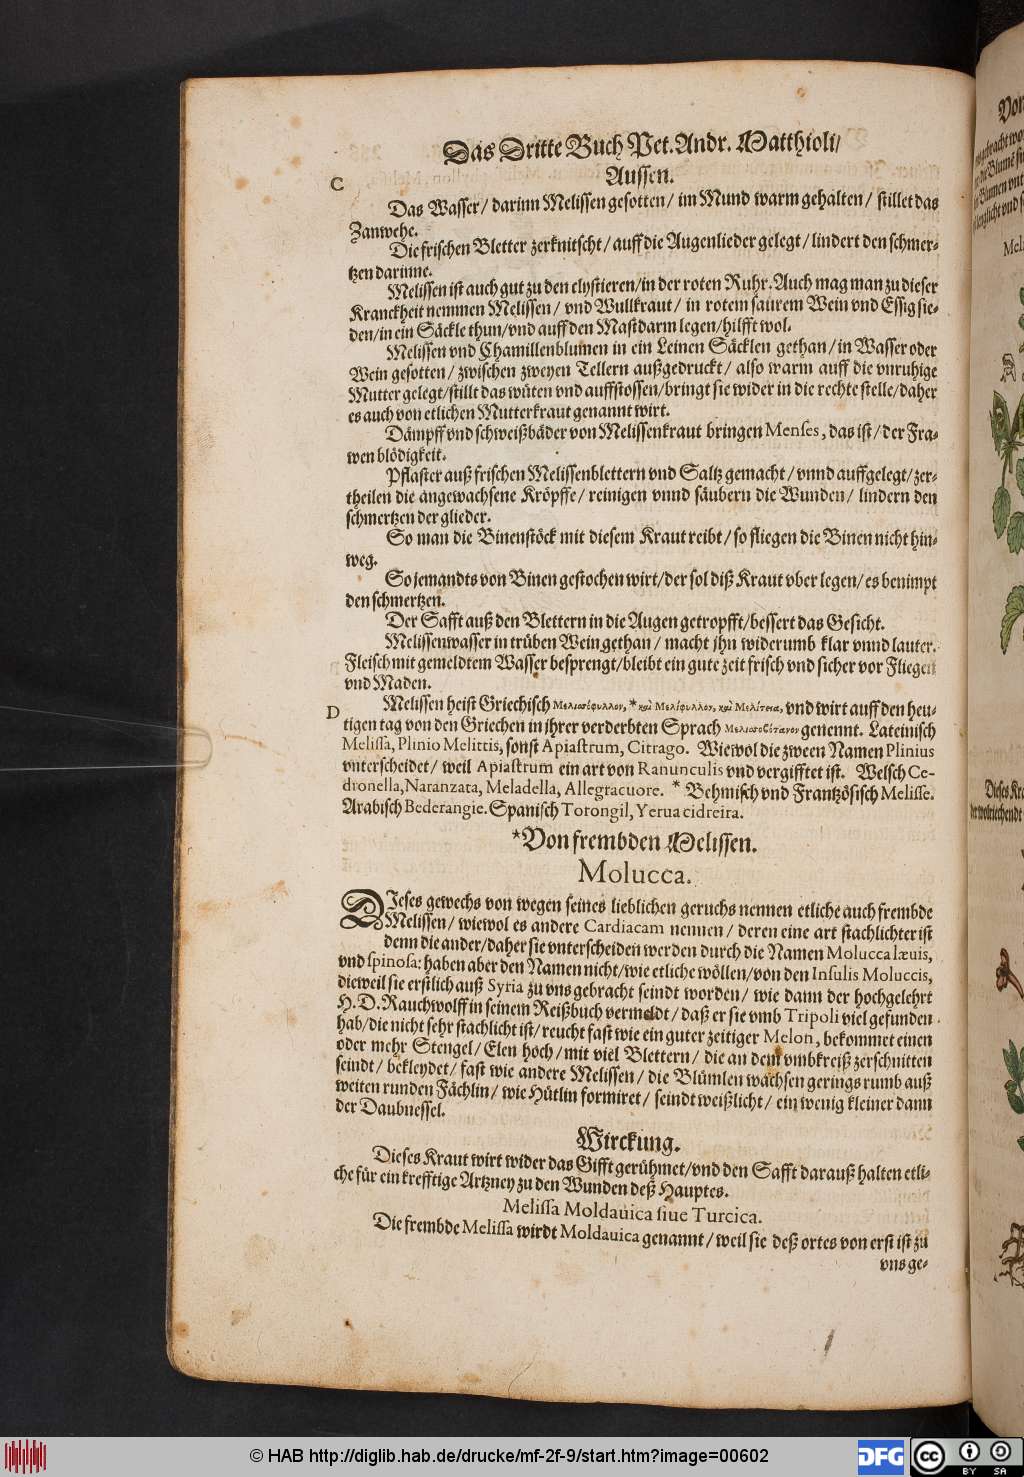 Das Dritte Buch Pet. Andr. Matthioli/
Aussen.
C
Das Wasser/ darinn Melissen gesotten/ im Mund warm gehalten/ stillet das
Zanwehe.
Die frischen Bletter zerknitscht/ auff die Augenlieder gelegt/ lindert den schmer-
tzen darinne.
Melissen ist auch gut zu den clystieren/ in der roten Ruhr. Auch mag man zu dieser
Kranckheit nemmen Melissen/ vnd Wullkraut/ in rotem saurem Wein vnd Essig sie-
den/ in ein Säckle thun/ vnd auff den Mastdarm legen/ hilfft wol.
Melissen vnd Chamillenblumen in ein Leinen Säcklen gethan/ in Wasser oder
Wein gesotten/ zwischen zweyen Tellern außgedruckt/ also warm auff die vnruhige
Mutter gelegt/ stillt das wüten vnd auffstossen/ bringt sie wider in die rechte stelle/ daher
es auch von etlichen Mutterkraut genannt wirt.
Dämpff vnd schweißbäder von Melissenkraut bringen Menses, das ist/ der Fra-
wen blödigkeit.
Pflaster auß frischen Melissenblettern vnd Saltz gemacht/ vnnd auffgelegt/ zer-
theilen die angewachsene Kröpffe/ reinigen vnnd säubern die Wunden/ lindern den
schmertzen der glieder.
So man die Binenstöck mit diesem Kraut reibt/ so fliegen die Binen nicht hin-
weg.
So jemandts von Binen gestochen wirt/ der sol diß Kraut vber legen/ es benimpt
den schmertzen.
Der Safft auß den Blettern in die Augen getropfft/ bessert das Gesicht.
Melissenwasser in trüben Wein gethan/ macht jhn widerumb klar vnnd lauter.
Fleisch mit gemeldtem Wasser besprengt/ bleibt ein gute zeit frisch vnd sicher vor Fliegen
vnd Maden.
D
Melissen heist Griechisch Μελισσόφυλλον, * καὶ Μελίφυλλον, καὶ Μελίτεια, vnd wirt auff den heu-
tigen tag von den Griechen in jhrer verderbten Sprach Μελισσοβότανον genennt. Lateinisch
Melissa, Plinio Melittis, sonst Apiastrum, Citrago. Wiewol die zween Namen Plinius
vnterscheidet/ weil Apiastrum ein art von Ranunculis vnd vergifftet ist. Welsch Ce-
dronella, Naranzata, Meladella, Allegracuore. * Behmisch vnd Frantzösisch Melisse.
Arabisch Bederangie. Spanisch Torongil, Yerua cidreira.
*Von frembden Melissen.
Molucca.
DJeses gewechs von wegen seines lieblichen geruchs nennen etliche auch frembde
Melissen/ wiewol es andere Cardiacam nennen/ deren eine art stachlichter ist
denn die ander/ daher sie vnterscheiden werden durch die Namen Molucca læuis,
vnd spinosa: haben aber den Namen nicht/ wie etliche wöllen/ von den Insulis Moluccis,
dieweil sie erstlich auß Syria zu vns gebracht seindt worden/ wie dann der hochgelehrt
H. D. Rauchwolff in seinem Reißbuch vermeldt/ daß er sie vmb Tripoli viel gefunden
hab/ die nicht sehr stachlicht ist/ reucht fast wie ein guter zeitiger Melon, bekommet einen
oder mehr Stengel/ Elen hoch/ mit viel Blettern/ die an dem vmbkreiß zerschnitten
seindt/ bekleydet/ fast wie andere Melissen/ die Blümlen wachsen gerings rumb auß
weiten runden Fächlin/ wie Hütlin formiret/ seindt weißlicht/ ein wenig kleiner dann
der Daubnessel.
Wirckung.
Dieses Kraut wirt wider das Gifft gerühmet/ vnd den Safft darauß halten etli-
che für ein krefftige Artzney zu den Wunden deß Hauptes.
Melissa Moldauica siue Turcica.
Die frembde Melissa wirdt Moldauica genannt/ weil sie deß ortes von erst ist zu
vns ge-
© HAB http://diglib.hab.de/drucke/mf-2f-9/start.htm?image=00602
DFG
cc
BY SA